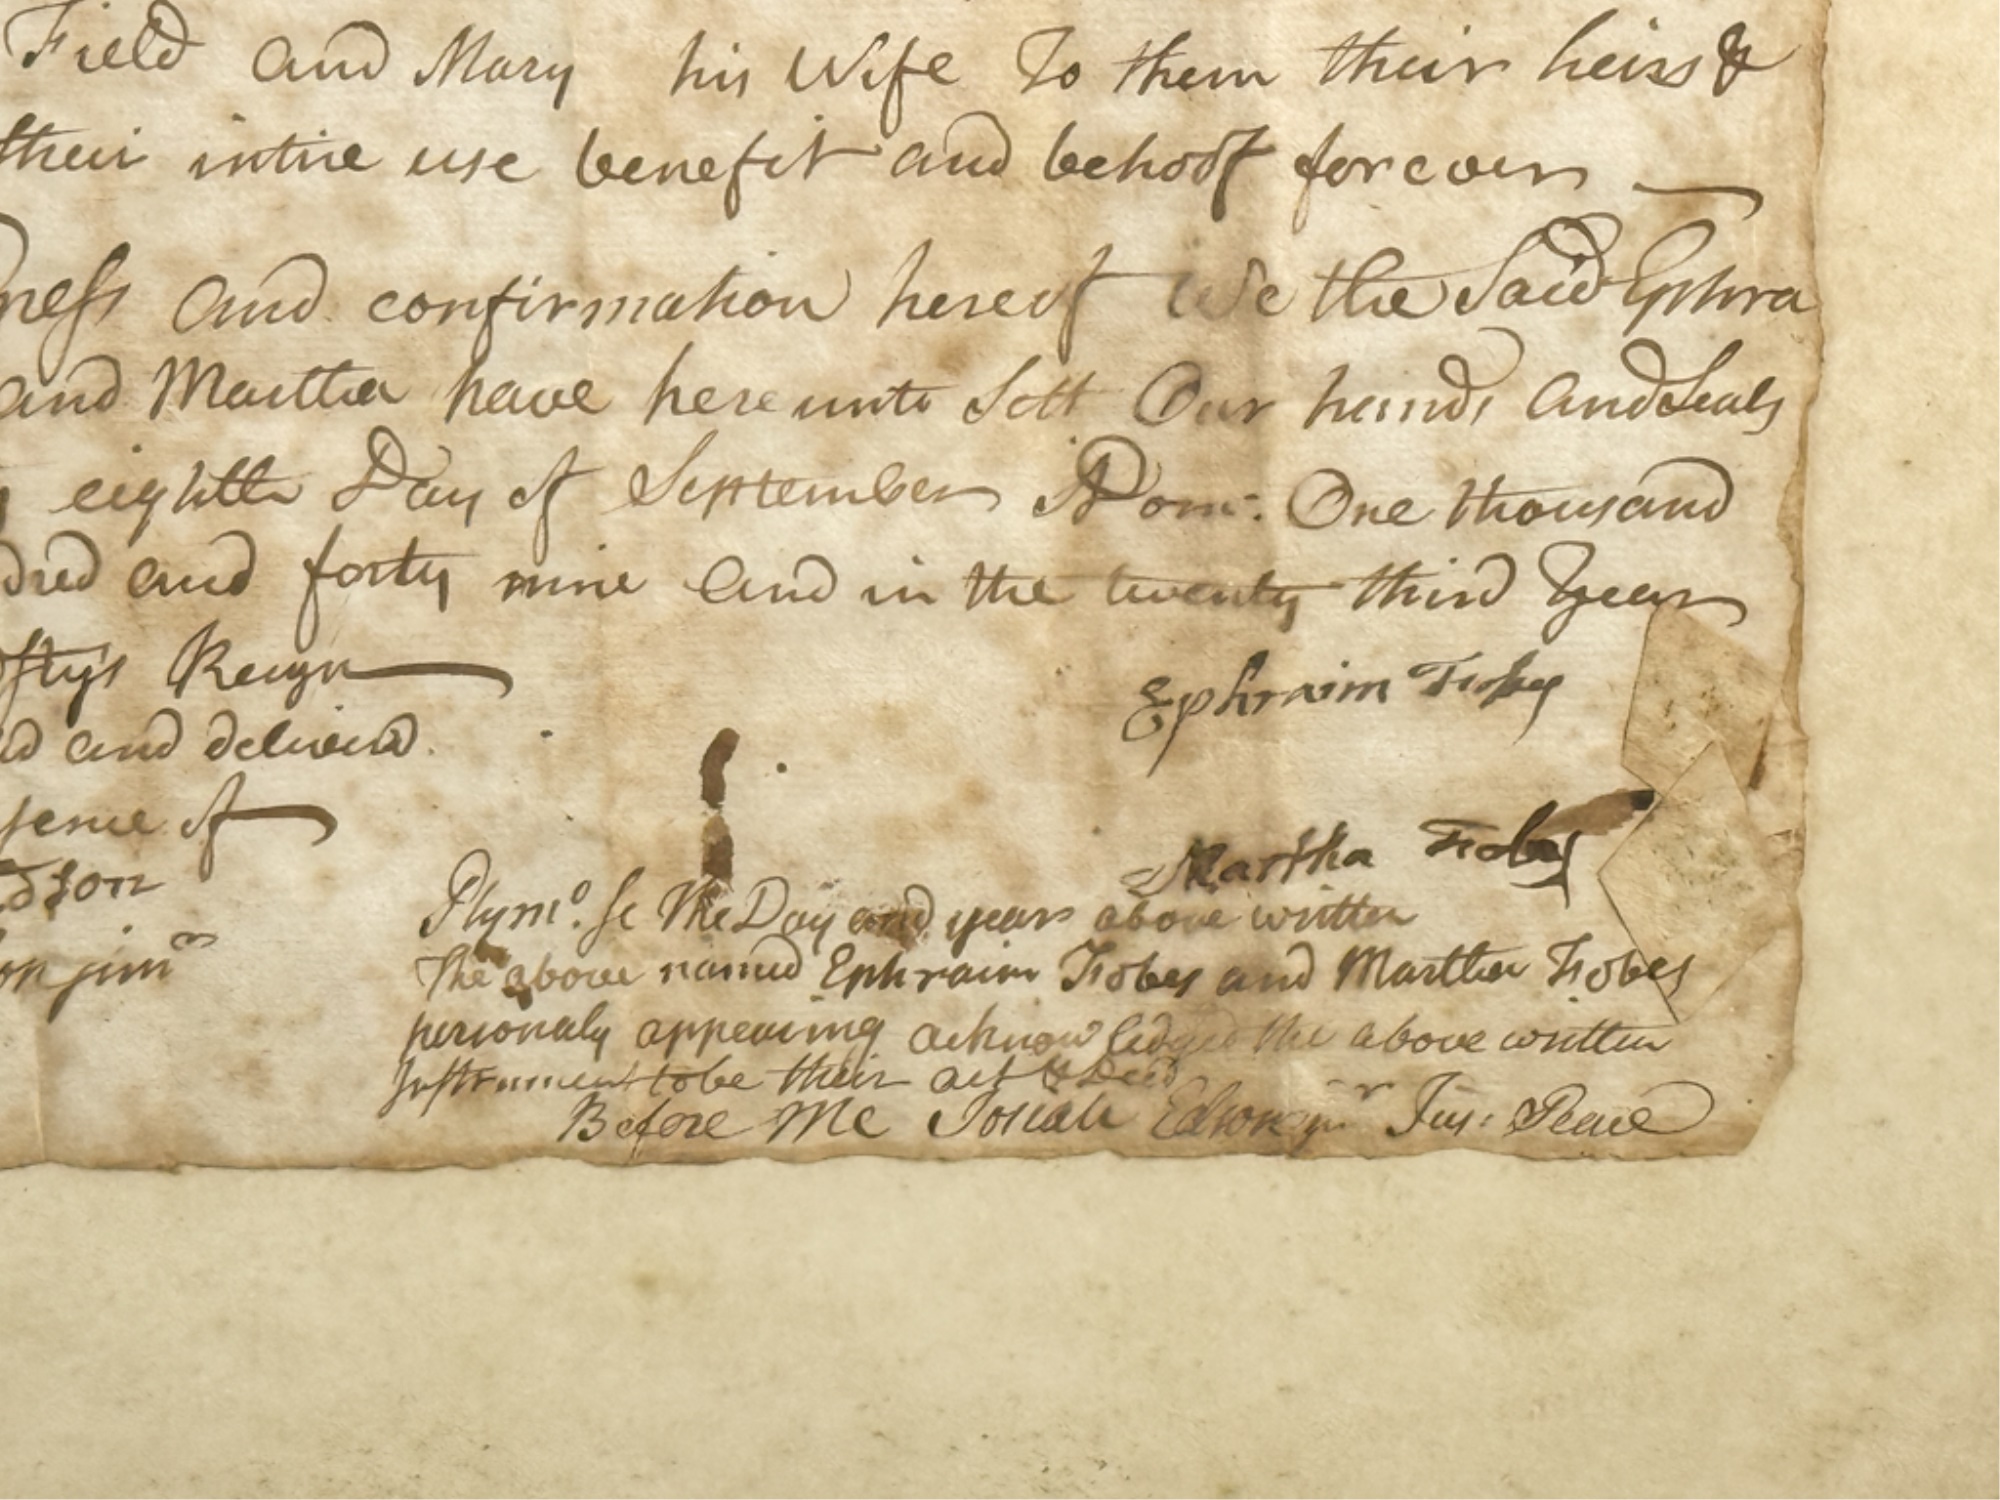 Field and Mary his Wife To them their heirs &
their intire use benefit and behoof forever
ness and confirmation hereof We the Said Ephra
and Martha have hereunto Sett Our hands and Seals
eighth Day of September ADom: One thousand
dred and forty nine and in the twenty third Year
stys Reign
d and deliverd.
sence of
dson
on junr
Ephraim Fobes
Martha Fobes
Plymo. Sc The Day and years above written
The above named Ephraim Fobes and Martha Fobes
personaly appearing acknowledged the above written
Instrument to be their act & Deed
Before Me Josiah Edson junr Jus: Peace